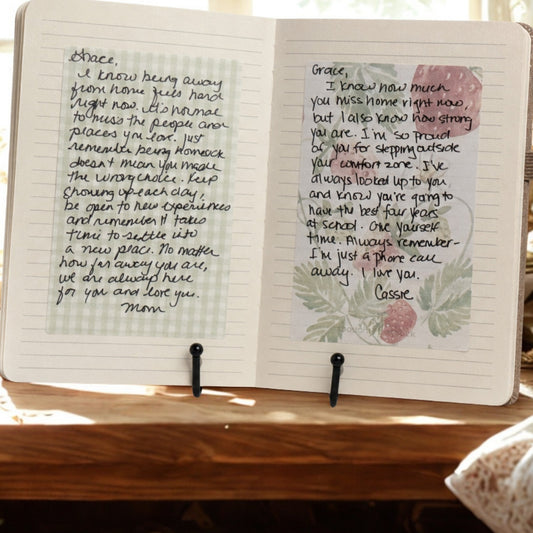 Grace,
I know being away
from home feels hard
right now. It's normal
to miss the people and
places you love. Just
remember being homesick
doesn't mean you made
the wrong choice. Keep
showing up each day,
be open to new experiences
and remember it takes
time to settle into
a new place. No matter
how far away you are,
we are always here
for you and love you.
Mom
Grace,
I know how much
you miss home right now,
but I also know how strong
you are. I'm so proud
of you for stepping outside
your comfort zone. I've
always looked up to you
and know you're going to
have the best four years
at school. Give yourself
time. Always remember-
I'm just a phone call
away. I love you.
Cassie